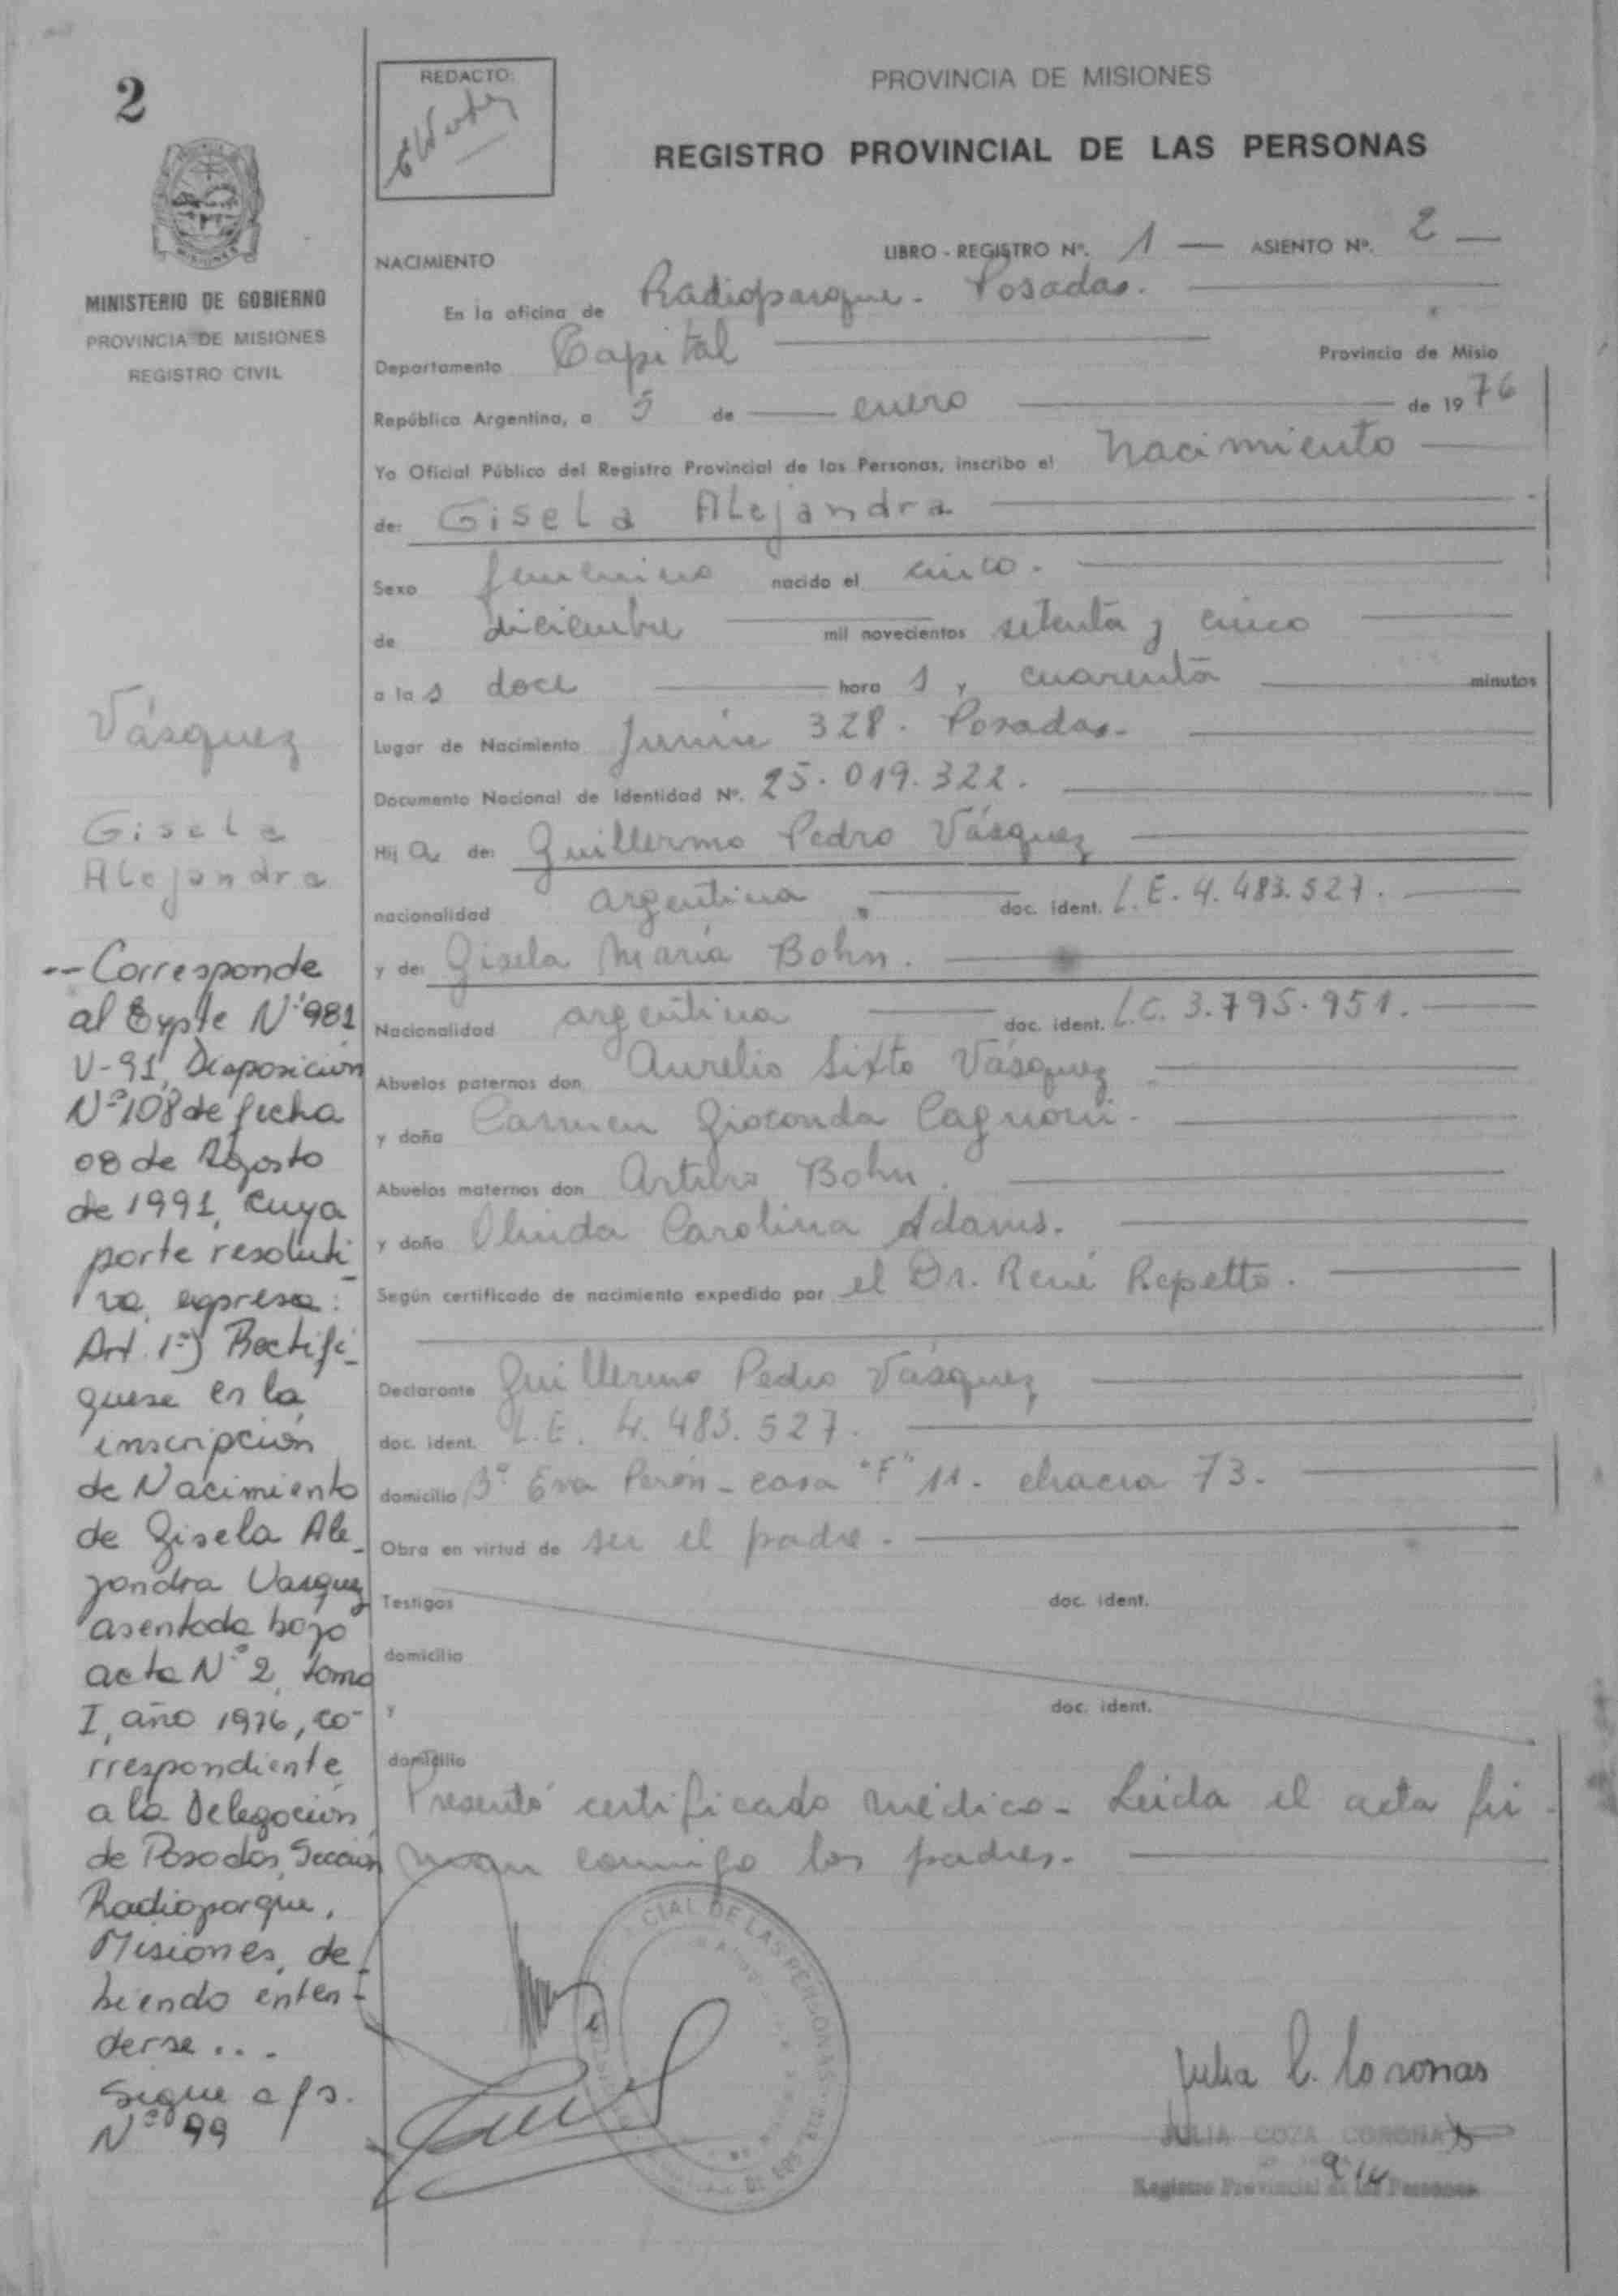 2
REDACTO:
PROVINCIA DE MISIONES
REGISTRO PROVINCIAL DE LAS PERSONAS
MINISTERIO DE GOBIERNO
PROVINCIA DE MISIONES
REGISTRO CIVIL
LIBRO - REGISTRO Nº. 1 — ASIENTO Nº. 2 —
NACIMIENTO
En la oficina de Radioparque - Posadas.
Departamento Capital Provincia de Misio
República Argentina, a 5 de enero de 1976
Yo Oficial Público del Registro Provincial de las Personas, inscribo el nacimiento
de: Gisela Alejandra
Sexo femenino nacido el cinco.
de diciembre mil novecientos setenta y cinco
a la s doce hora s y cuarenta minutos
Lugar de Nacimiento Junín 328. Posadas.
Documento Nacional de Identidad Nº. 25.019.322.
Hij a de: Guillermo Pedro Vásquez
nacionalidad argentina doc. ident. L.E. 4.483.527.
y de: Gisela María Bohn.
Nacionalidad argentina doc. ident. L.C. 3.795.951.
Abuelos paternos don Aurelio Sixto Vásquez
y doña Carmen Gioconda Cagnoni.
Abuelos maternos don Arturo Bohn.
y doña Olinda Carolina Adams.
Según certificado de nacimiento expedido por el Dr. René Repetto.
Declarante Guillermo Pedro Vásquez
doc. ident. L.E. 4.483.527.
domicilio Bº Eva Perón - casa "F" 11. chacra 73.
Obra en virtud de ser el padre.
Testigos doc. ident.
domicilio
y doc. ident.
domicilio
Presentó certificado médico. Leída el acta fir
man conmigo los padres.
Vásquez
Gisela
Alejandra
-- Corresponde
al Expte Nº 981
V-91, Disposición
Nº 108 de fecha
08 de Agosto
de 1991, cuya
parte resoluti
va expresa:
Art. 1º) Rectifí-
quese en la
inscripción
de Nacimiento
de Gisela Ale-
jandra Vasquez
asentada bajo
acta Nº 2, tomo
I, año 1976, co-
rrespondiente
a la Delegación
de Posadas, Sección
Radioparque,
Misiones, de
biendo enten-
derse...
Sigue a fs.
Nº 99
CIAL DE LAS PERSONAS
Julia C. Coronas
JULIA COZA CORONAS
Registro Provincial de las Personas